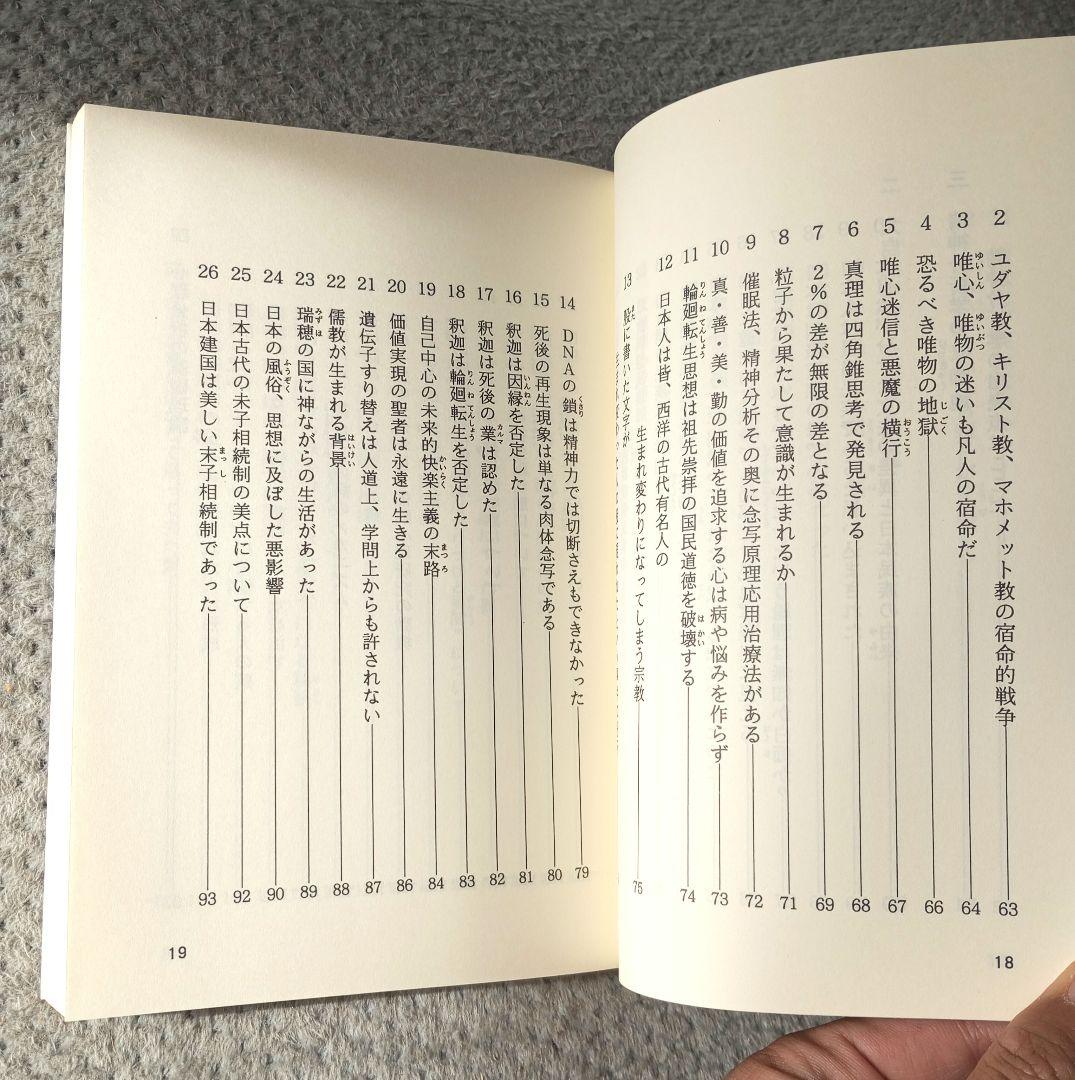 2 ユダヤ教、キリスト教、マホメット教の宿命的戦争 63
3 唯心、唯物の迷いも凡人の宿命だ 64
4 恐るべき唯物の地獄 66
5 唯心迷信と悪魔の横行 67
6 真理は四角錐思考で発見される 68
7 2％の差が無限の差となる 69
8 粒子から果たして意識が生まれるか 71
9 催眠法、精神分析その奥に念写原理応用治療法がある 72
10 真・善・美・勤の価値を追求する心は病や悩みを作らず 73
11 輪廻転生思想は祖先崇拝の国民道徳を破壊する 74
12 日本人は皆、西洋の古代有名人の
生まれ変わりになってしまう宗教 75
13 股に書いた文字が
18
14 DNAの鎖は精神力では切断さえもできなかった 79
15 死後の再生現象は単なる肉体念写である 80
16 釈迦は因縁を否定した 81
17 釈迦は死後の業は認めた 82
18 釈迦は輪廻転生を否定した 83
19 自己中心の未来的快楽主義の末路 84
20 価値実現の聖者は永遠に生きる 86
21 遺伝子すり替えは人道上、学問上からも許されない 87
22 儒教が生まれる背景 88
23 瑞穂の国に神ながらの生活があった 89
24 日本の風俗、思想に及ぼした悪影響 90
25 日本古代の末子相続制の美点について 92
26 日本建国は美しい末子相続制であった 93
19